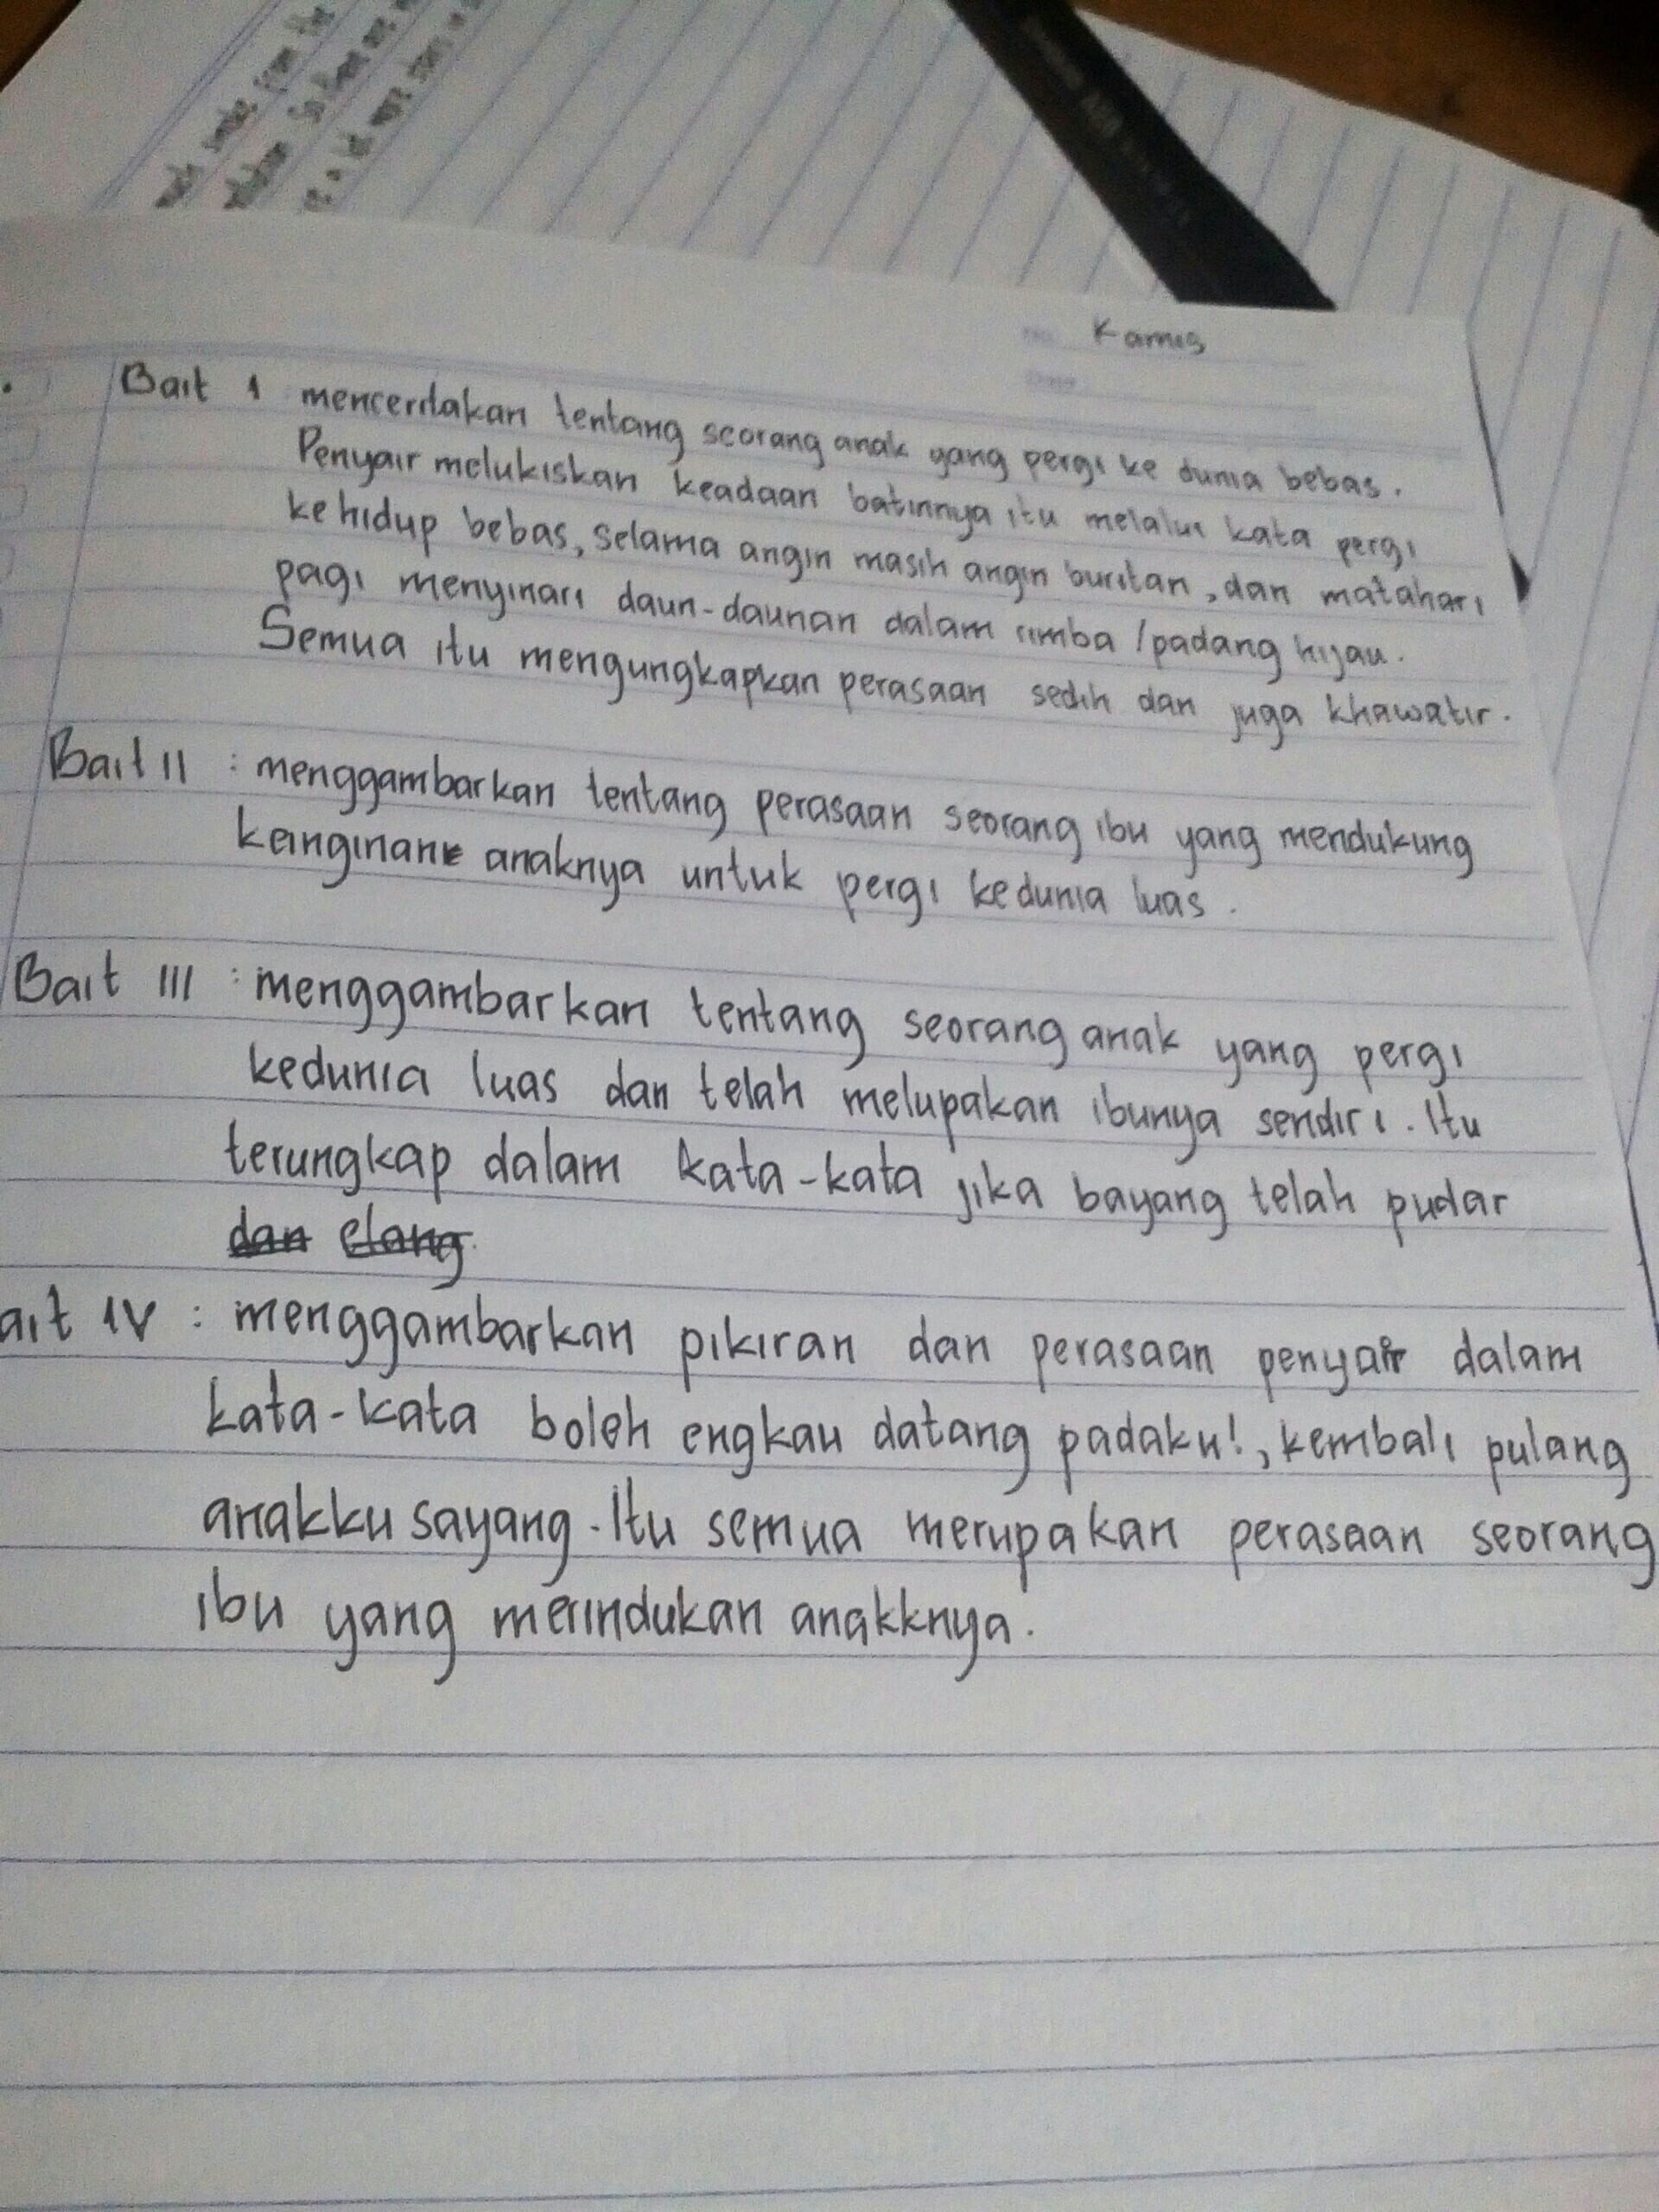 Kamis
Bait 1 menceritakan tentang seorang anak yang pergi ke dunia bebas.
Penyair melukiskan keadaan batinnya itu melalui kata pergi
ke hidup bebas, selama angin masih angin buritan, dan matahari
pagi menyinari daun-daunan dalam rimba / padang hijau.
Semua itu mengungkapkan perasaan sedih dan juga khawatir.
Bait II : menggambarkan tentang perasaan seorang ibu yang mendukung
keinginan anaknya untuk pergi kedunia luas.
Bait III : menggambarkan tentang seorang anak yang pergi
kedunia luas dan telah melupakan ibunya sendiri. Itu
terungkap dalam kata-kata jika bayang telah pudar
dan elang.
ait IV : menggambarkan pikiran dan perasaan penyair dalam
kata-kata boleh engkau datang padaku!, kembali pulang
anakku sayang. Itu semua merupakan perasaan seorang
ibu yang merindukan anakknya.